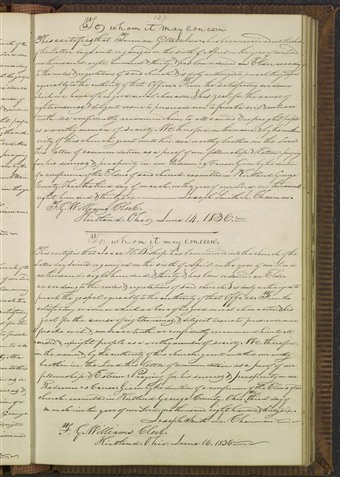 137
To whom it may concern
This certifies that Truman Gillett
the latter day saints organized on the sixth of April in the year of our Lord
one thousand eight hundred & thirty
to the rules & regulations of said church & is duly authorized to preach the gospel
agreeably to the authority of that Office. From the satisfactory evidence
we have of his good moral character, & his zeal for the cause of
righteousness, & diligent desire to persuade men to forsake evil & embrace
truth, we confidently recommend him to all candid & upright people
as a worthy member of society. We therefore in the name, & by the authority
of this church, grant unto this, our worthy brother in the Lord, this
letter of commendation as a proof of our fellowship & esteem: praying
for his success & prosperity in our Redeemer's Cause. Given by the direction
of a conference of the Elders of said church assembled in Kirtland, Geauga
County, Ohio the third day of march in the year of our Lord one thousand
eight hundred & thirty six.
Joseph Smith Jr. Chairman
F. G. Williams Clerk.
Kirtland, Ohio, June 14, 1836.
To whom it may concern.
This certifies that Isaac H. Bishop has been received into the church of the
latter day saints, organized on the sixth of April in the year of our Lord
one thousand eight hundred & thirty & has been ordained an Elder
according to the rules & regulations of said church & is duly authorized to
preach the gospel agreeably to the authority of that Office. From the
satisfactory evidence which we have of his good moral character, & his
zeal for the cause of righteousness, & diligent desire to persuade men to
forsake evil & embrace truth, we confidently recommend him to all
candid & upright people as a worthy member of society. We therefore
in the name, & by the authority of this church, grant unto this our worthy
brother in the Lord, this letter of commendation as a proof of our
fellowship & Esteem: Praying for his success & prosperity in our
Redeemer's Cause. Given by the direction of a conference of the Elders of said
church assembled in Kirtland, Geauga County, Ohio, the third day of
march in the year of our Lord one thousand eight hundred & thirty six.
Joseph Smith Jr. Chairman
F. G. Williams Clerk.
Kirtland, Ohio, June 16, 1836